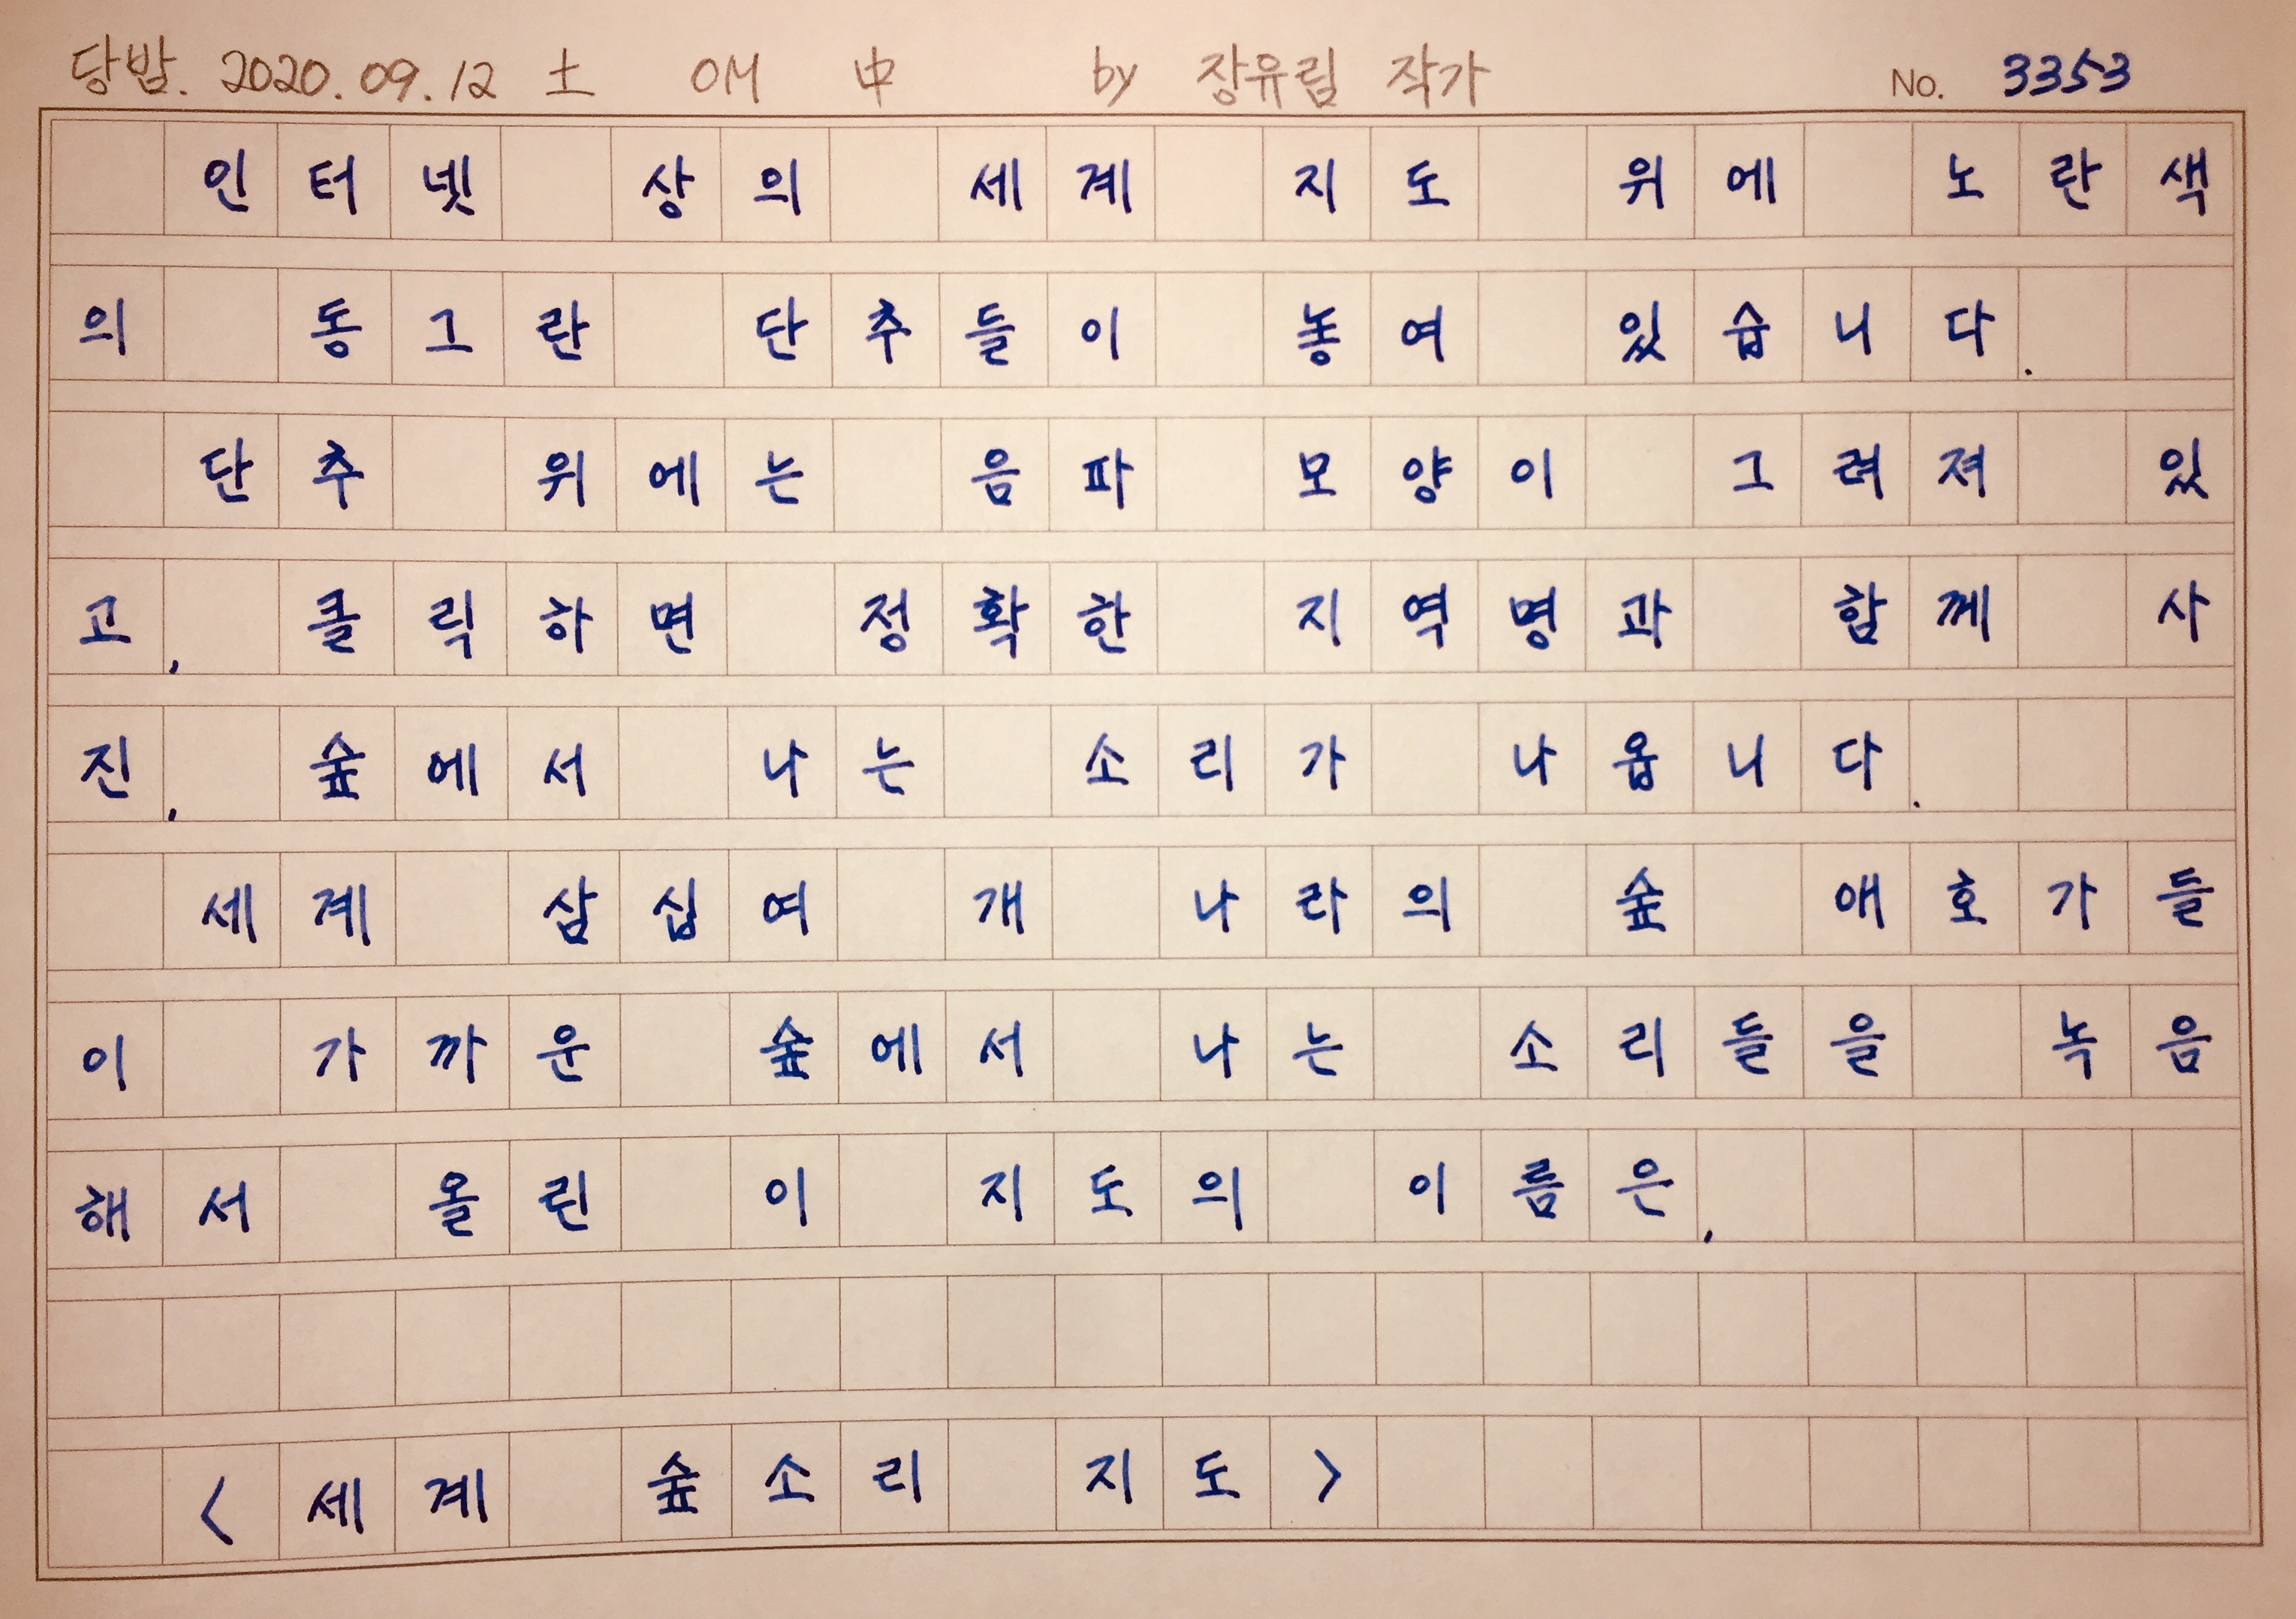 당밤. 2020.09.12 土 OM 中 by 장유림 작가 No. 3353
인터넷 상의 세계 지도 위에 노란색
의 동그란 단추들이 놓여 있습니다.
단추 위에는 음파 모양이 그려져 있
고, 클릭하면 정확한 지역명과 함께 사
진, 숲에서 나는 소리가 나옵니다.
세계 삼십여 개 나라의 숲 애호가들
이 가까운 숲에서 나는 소리들을 녹음
해서 올린 이 지도의 이름은,
<세계 숲소리 지도>